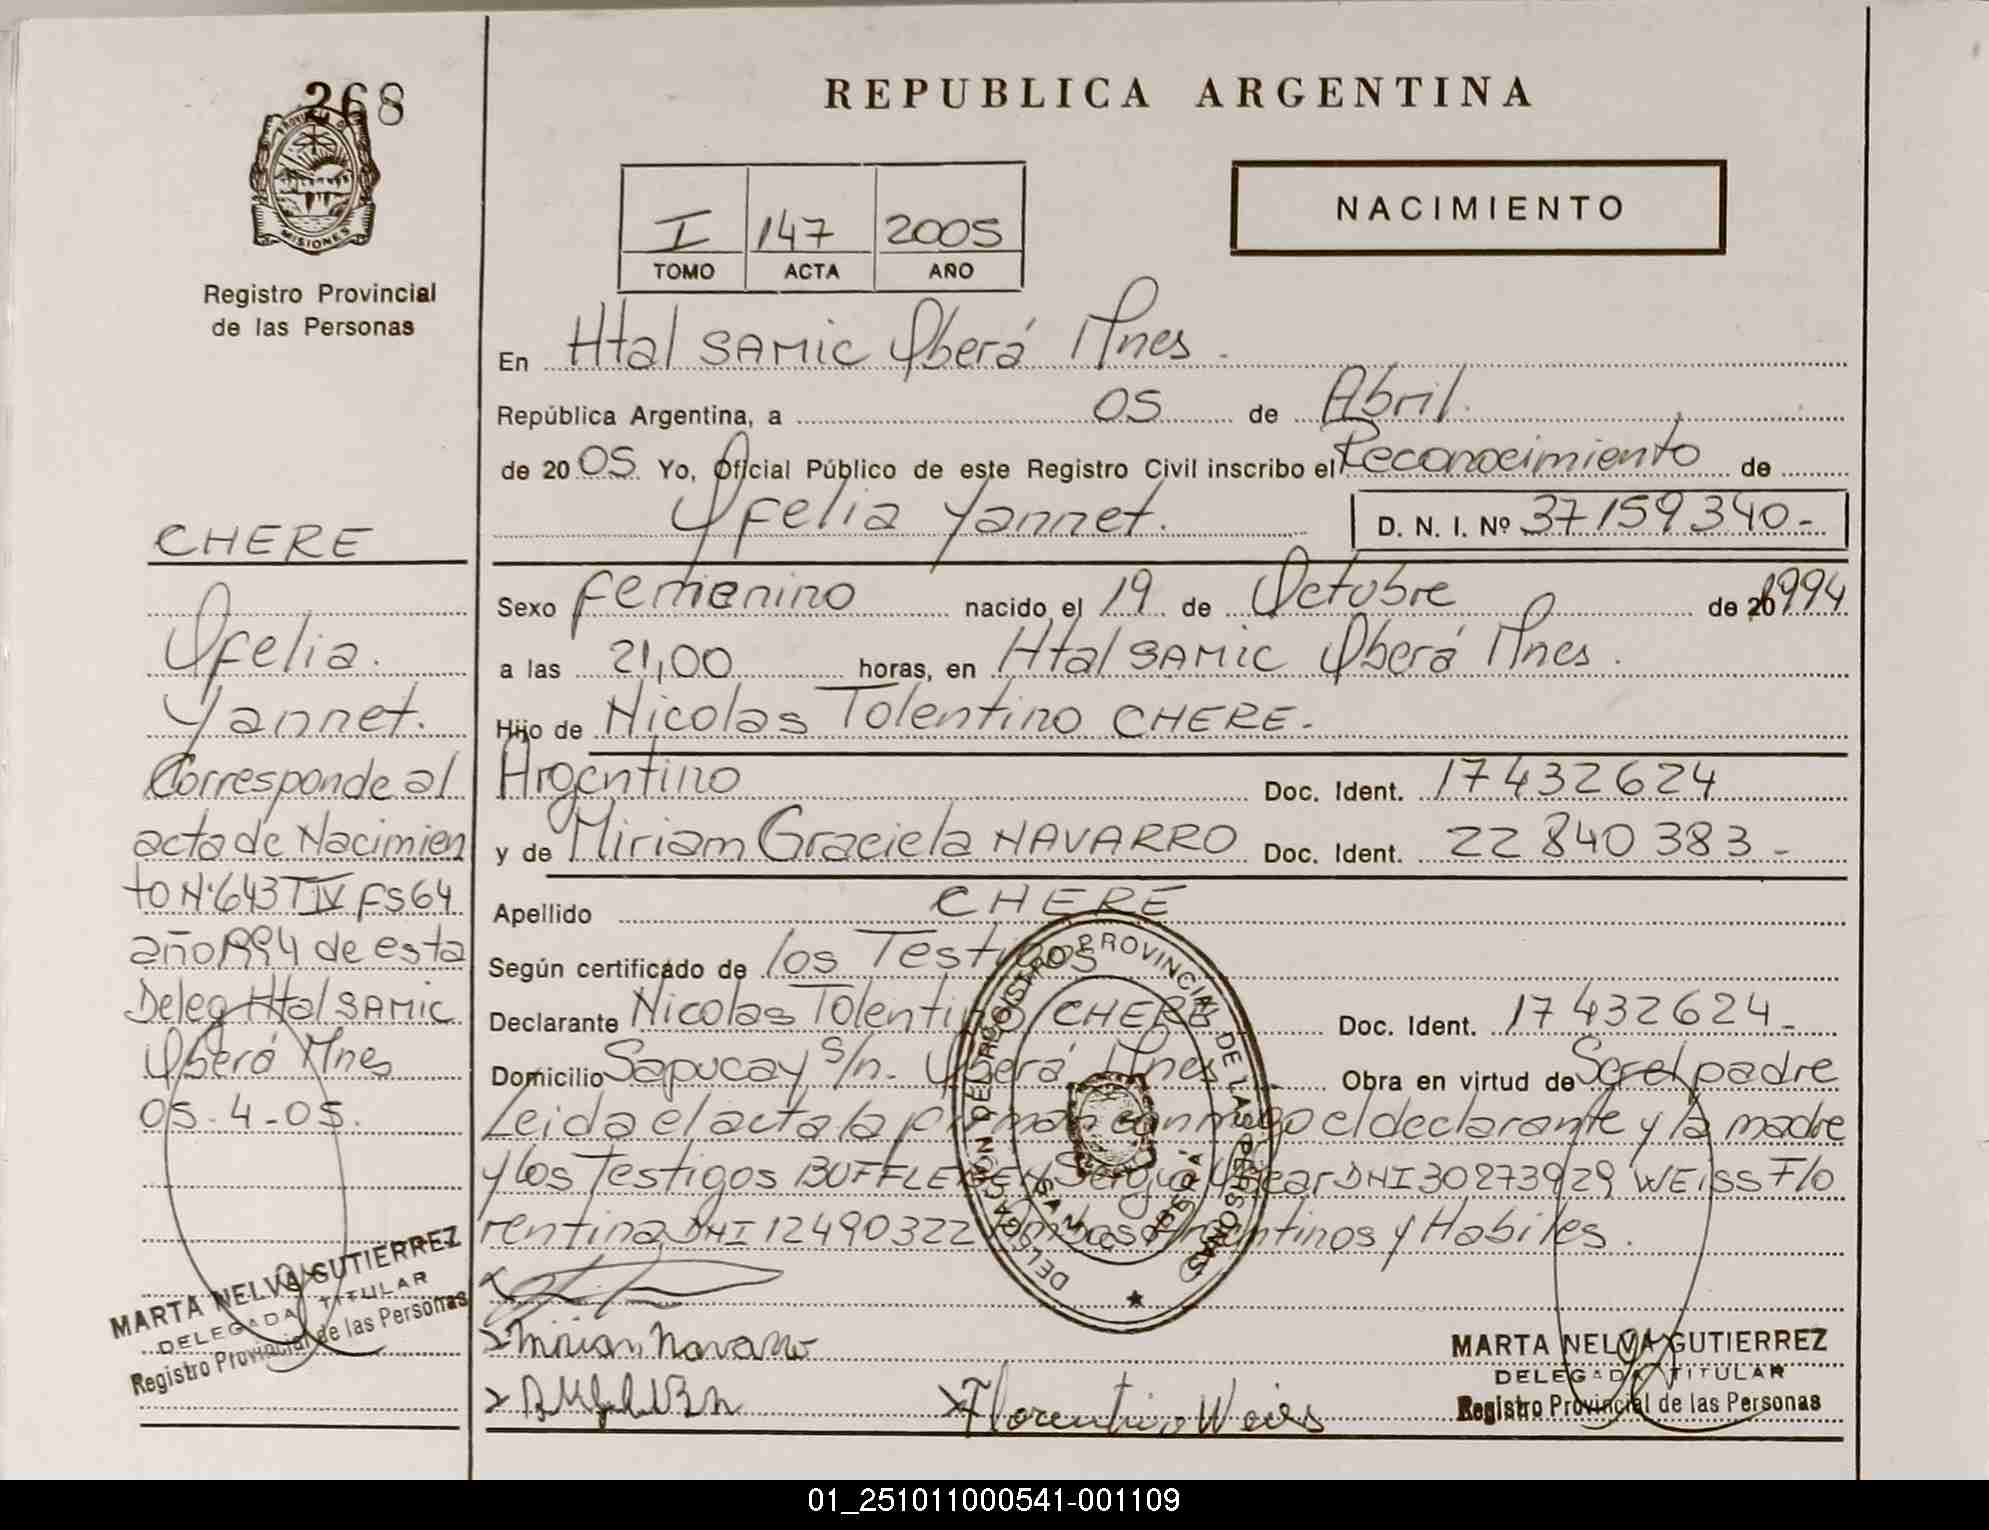 268
PROVINCIA DE
MISIONES
Registro Provincial
de las Personas
REPUBLICA ARGENTINA
I 147 2005
TOMO ACTA AÑO
NACIMIENTO
En Htal SAMIC Oberá Mnes.
República Argentina, a 05 de Abril
de 2005 Yo, Oficial Público de este Registro Civil inscribo el Reconocimiento de
Ofelia Yannet. D. N. I. Nº 37159340-
Sexo femenino nacido el 19 de Octubre de 20 1994
a las 21,00 horas, en Htal SAMIC Oberá Mnes.
Hijo de Nicolas Tolentino CHERE.
Argentino Doc. Ident. 17432624
y de Miriam Graciela NAVARRO Doc. Ident. 22840383-
Apellido CHERE
Según certificado de los Testigos
Declarante Nicolas Tolentino CHERE Doc. Ident. 17432624-
Domicilio Sapucay s/n. Oberá Mnes Obra en virtud de Ser el padre
Leida el acta la firman conmigo el declarante y la madre
y los Testigos Sergio DNI 30273929 WEISS Flo
rentina DNI 12490322 ambos Argentinos y Habiles.
Mirian Navarro
Florentino Weiss
MARTA NELVA GUTIERREZ
DELEGADA TITULAR
Registro Provincial de las Personas
DELEGACIÓN DEL REGISTRO PROVINCIAL DE LAS PERSONAS
SAMIC OBERÁ
CHERE
Ofelia.
Yannet.
Corresponde al
acta de Nacimien
to Nº643 T IV FS 64
año 1994 de esta
Deleg Htal SAMIC
Oberá Mnes
05-4-05.
MARTA NELVA GUTIERREZ
DELEGADA TITULAR
Registro Provincial de las Personas
01_251011000541-001109